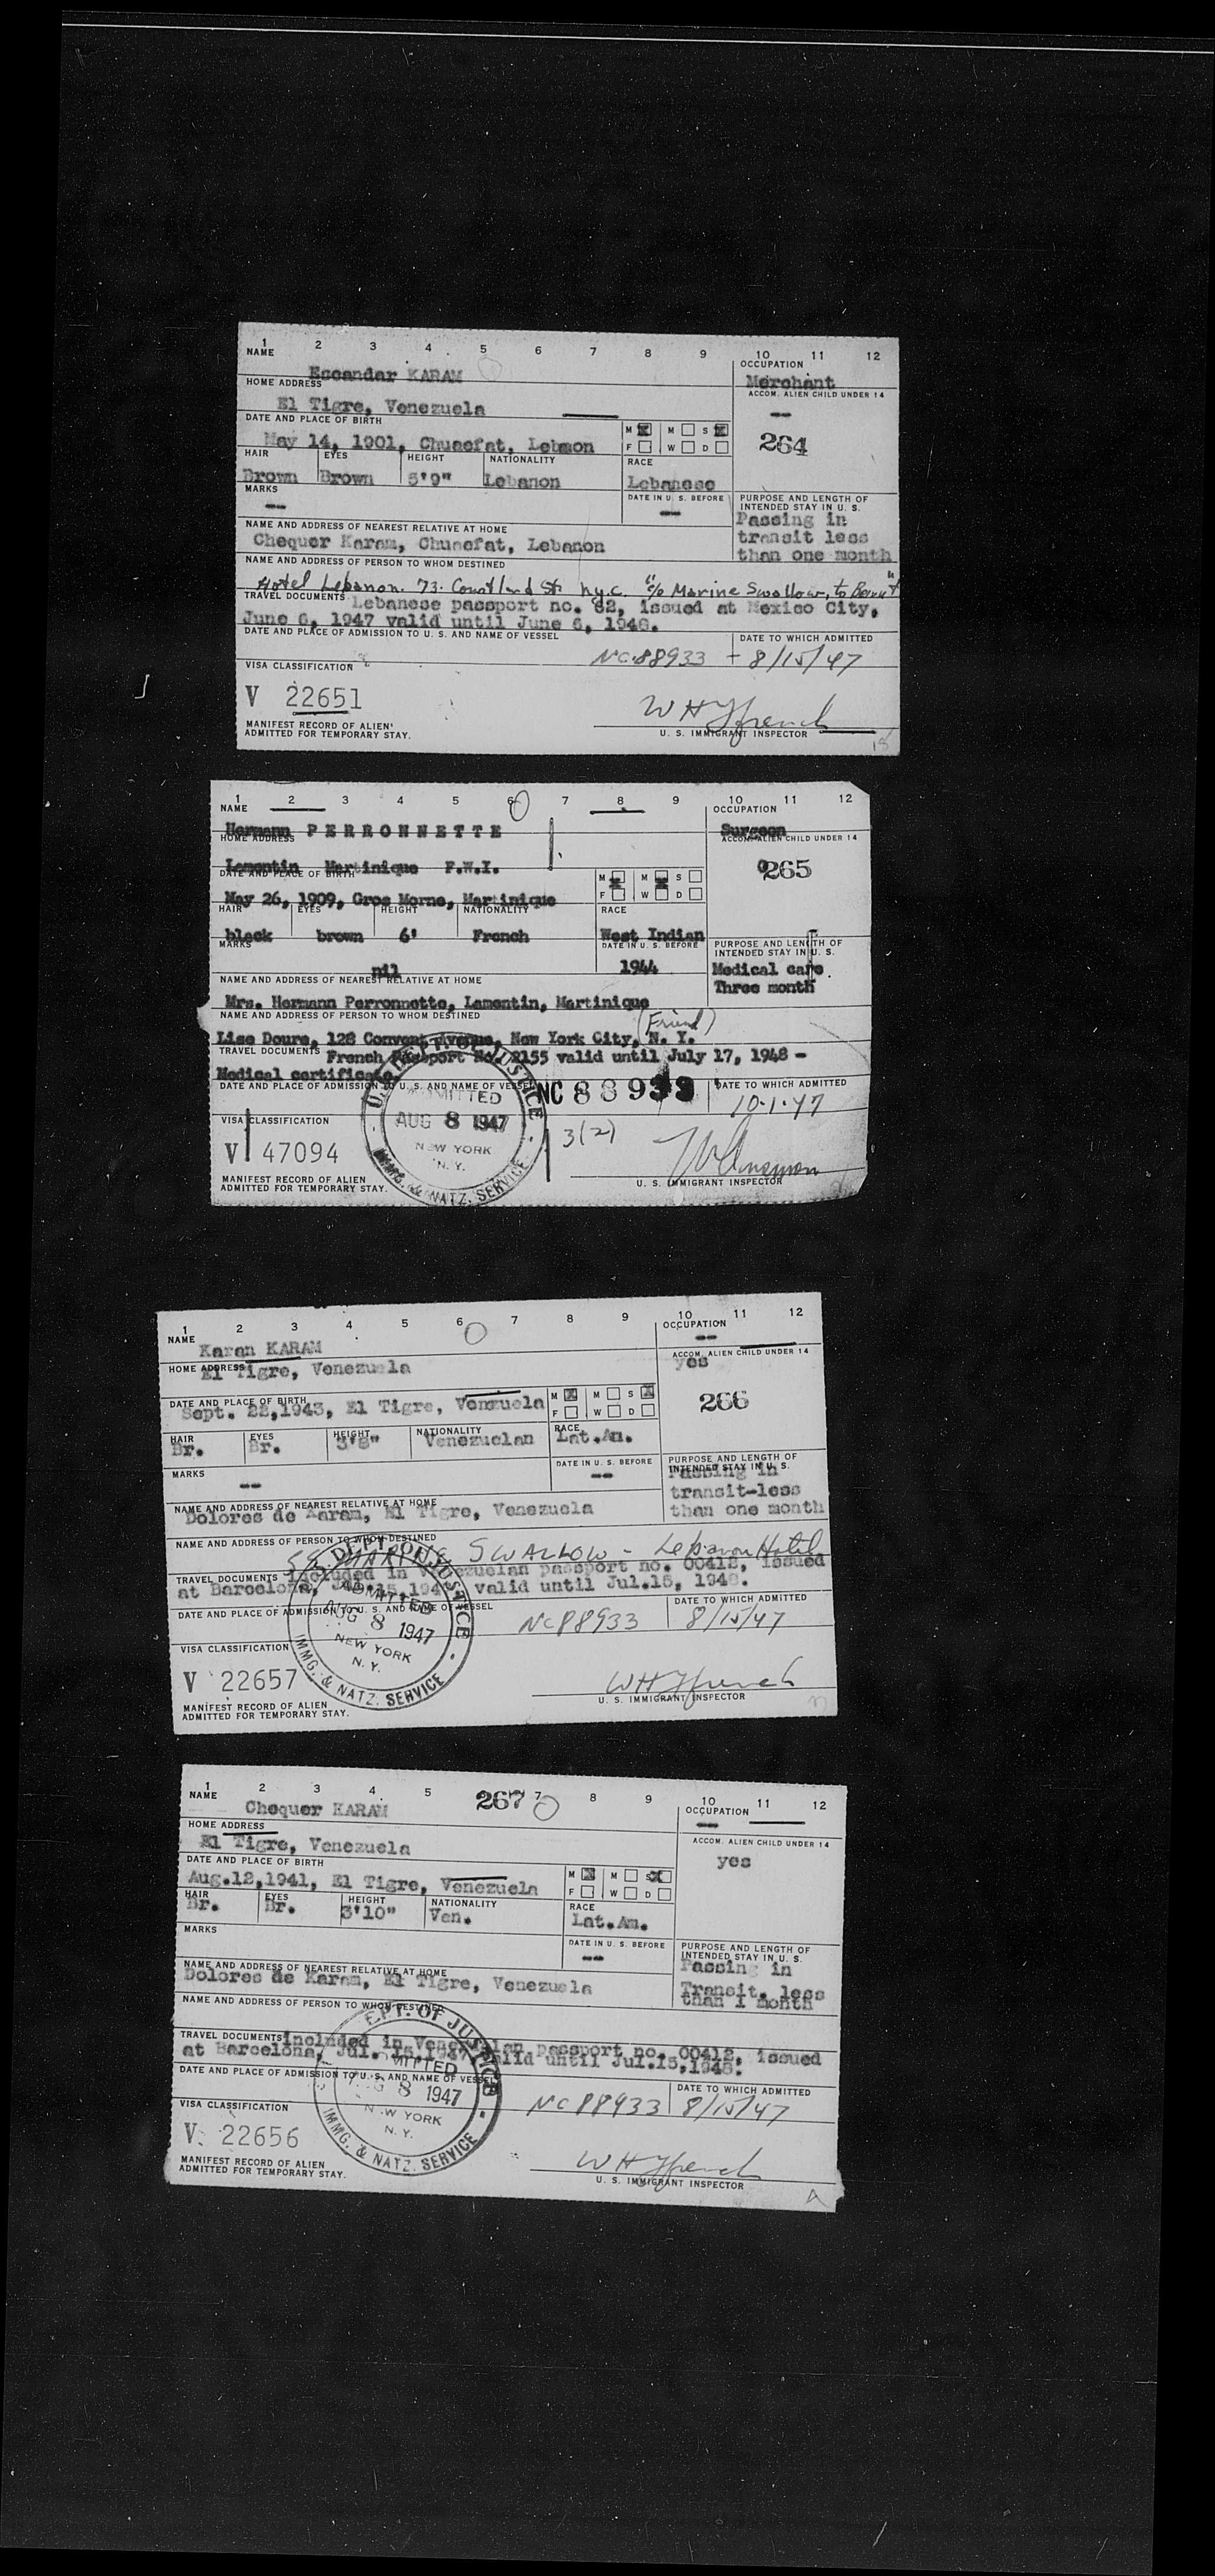 1 2 3 4 5 6 7 8 9 10 11 12
NAME OCCUPATION
Escandar KARAM Merchant
HOME ADDRESS ACCOM. ALIEN CHILD UNDER 14
El Tigre, Venezuela --
DATE AND PLACE OF BIRTH M X M S X 264
May 14, 1901, Chuaefat, Lebanon F W D
HAIR EYES HEIGHT NATIONALITY RACE
Brown Brown 5'9" Lebanon Lebanese
MARKS DATE IN U. S. BEFORE PURPOSE AND LENGTH OF
-- -- INTENDED STAY IN U. S.
NAME AND ADDRESS OF NEAREST RELATIVE AT HOME Passing in
Chequer Karam, Chuaefat, Lebanon transit less
than one month
NAME AND ADDRESS OF PERSON TO WHOM DESTINED
Hotel Lebanon. 73. Courtland St. N.y.c. "c/o Marine Swallow, to Beirut"
TRAVEL DOCUMENTS Lebanese passport no. 82, issued at Mexico City,
June 6, 1947 valid until June 6, 1948.
DATE AND PLACE OF ADMISSION TO U. S. AND NAME OF VESSEL DATE TO WHICH ADMITTED
NC 88933 - 8/15/47
VISA CLASSIFICATION
V 22651
WHFrench
MANIFEST RECORD OF ALIEN U. S. IMMIGRANT INSPECTOR
ADMITTED FOR TEMPORARY STAY.
1 2 3 4 5 6 7 8 9 10 11 12
NAME OCCUPATION
Hermann PERRONNETTE Surgeon
HOME ADDRESS ACCOM. ALIEN CHILD UNDER 14
Lamentin Martinique F.W.I. 265
DATE AND PLACE OF BIRTH M X M X S
May 26, 1909, Gros Morne, Martinique F W D
HAIR EYES HEIGHT NATIONALITY RACE
black brown 6' French West Indian
MARKS DATE IN U. S. BEFORE PURPOSE AND LENGTH OF
nil 1944 INTENDED STAY IN U. S.
NAME AND ADDRESS OF NEAREST RELATIVE AT HOME Medical care.
Mrs. Hermann Perronnette, Lamentin, Martinique Three month
NAME AND ADDRESS OF PERSON TO WHOM DESTINED (Friend)
Lise Doure, 128 Convent Avenue, New York City, N. Y.
TRAVEL DOCUMENTS French Passport No. 2155 valid until July 17, 1948 -
Medical certificate
DATE AND PLACE OF ADMISSION TO U. S. AND NAME OF VESSEL NC 88933 DATE TO WHICH ADMITTED
10-1-47
U. S. DEPT. OF JUSTICE ADMITTED AUG 8 1947 NEW YORK N. Y. IMMG. & NATZ. SERVICE
VISA CLASSIFICATION 3(2)
V 47094
MANIFEST RECORD OF ALIEN U. S. IMMIGRANT INSPECTOR
ADMITTED FOR TEMPORARY STAY.
1 2 3 4 5 6 7 8 9 10 11 12
NAME OCCUPATION
Karan KARAM --
HOME ADDRESS ACCOM. ALIEN CHILD UNDER 14
El Tigre, Venezuela yes
DATE AND PLACE OF BIRTH M X M S X 266
Sept. 22,1943, El Tigre, Venezuela F W D
HAIR EYES HEIGHT NATIONALITY RACE
Br. Br. 3'8" Venezuelan Lat.Am.
MARKS DATE IN U. S. BEFORE PURPOSE AND LENGTH OF
-- -- INTENDED STAY IN U. S.
Passing in
NAME AND ADDRESS OF NEAREST RELATIVE AT HOME transit-less
Dolores de Karam, El Tigre, Venezuela than one month
NAME AND ADDRESS OF PERSON TO WHOM DESTINED
SS MARINE SWALLOW - Lebanon Hotel
TRAVEL DOCUMENTS included in Venezuelan passport no. 00412, issued
at Barcelona, Jul.15,1947 valid until Jul.15, 1948.
DATE AND PLACE OF ADMISSION TO U. S. AND NAME OF VESSEL DATE TO WHICH ADMITTED
NC 88933 8/15/47
DEPT. OF JUSTICE ADMITTED AUG 8 1947 NEW YORK N. Y. IMMG. & NATZ. SERVICE
VISA CLASSIFICATION
V 22657
WHFrench
MANIFEST RECORD OF ALIEN U. S. IMMIGRANT INSPECTOR
ADMITTED FOR TEMPORARY STAY.
1 2 3 4 5 267 7 8 9 10 11 12
NAME OCCUPATION
Chequer KARAM --
HOME ADDRESS ACCOM. ALIEN CHILD UNDER 14
El Tigre, Venezuela yes
DATE AND PLACE OF BIRTH M X M S X
Aug.12,1941, El Tigre, Venezuela F W D
HAIR EYES HEIGHT NATIONALITY RACE
Br. Br. 3'10" Ven. Lat.Am.
MARKS DATE IN U. S. BEFORE PURPOSE AND LENGTH OF
-- INTENDED STAY IN U. S.
NAME AND ADDRESS OF NEAREST RELATIVE AT HOME Passing in
Dolores de Karam, El Tigre, Venezuela Transit. less
than 1 month
NAME AND ADDRESS OF PERSON TO WHOM DESTINED
TRAVEL DOCUMENTS included in Venezuelan passport no. 00412, issued
at Barcelona, Jul. 15,1947 valid until Jul.15,1948.
DATE AND PLACE OF ADMISSION TO U. S. AND NAME OF VESSEL DATE TO WHICH ADMITTED
NC 88933 8/15/47
DEPT. OF JUSTICE ADMITTED AUG 8 1947 NEW YORK N. Y. IMMG. & NATZ. SERVICE
VISA CLASSIFICATION
V 22656
WHFrench
MANIFEST RECORD OF ALIEN U. S. IMMIGRANT INSPECTOR
ADMITTED FOR TEMPORARY STAY.